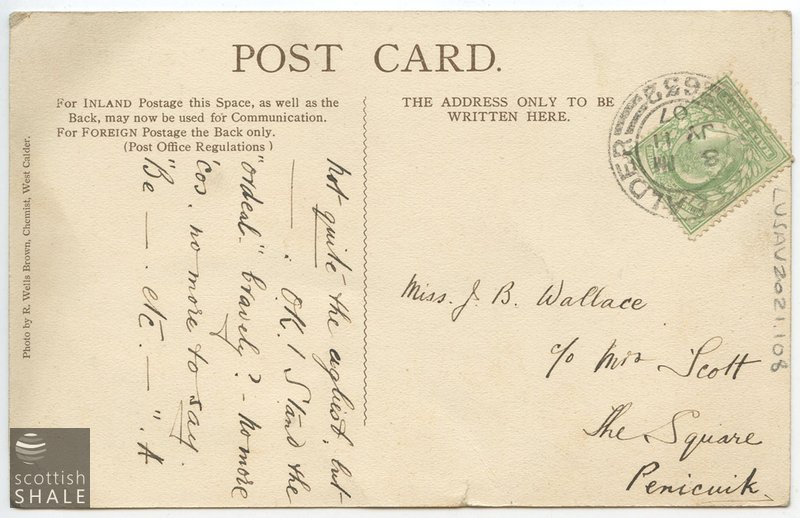 POST CARD.
For INLAND Postage this Space, as well as the
Back, may now be used for Communication.
For FOREIGN Postage the Back only.
(Post Office Regulations)
THE ADDRESS ONLY TO BE
WRITTEN HERE.
Photo by R. Wells Brown, Chemist, West Calder.
not quite the ugliest, but
— . OK. I Stand the
"ordeal" bravely? - no more
'cos. no more to say.
"Be — . etc. — ". A
Miss. J. B. Wallace
c/o Mrs Scott
The Square
Penicuik.
CALDER
632
8
JY 11
07
LUSAV2021.108
scottish
SHALE